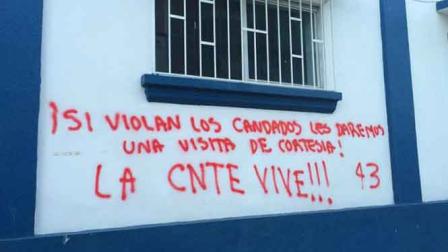 ¡SI VIOLAN LOS CANDADOS LES DAREMOS
UNA VISITA DE CORTESIA!
LA CNTE VIVE!!! 43